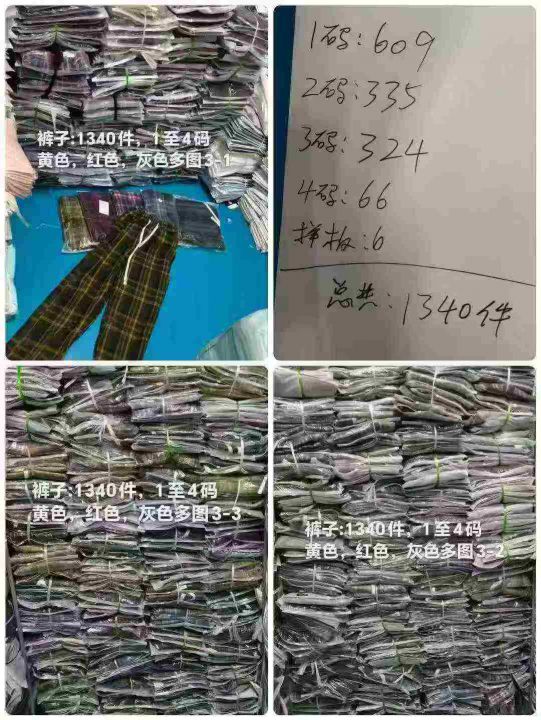 裤子:1340件，1至4码
黄色，红色，灰色多图3-1
1码:609
2码:335
3码:324
4码:66
样板:6
总共:1340件
裤子:1340件，1至4码
黄色，红色，灰色多图3-3
裤子:1340件，1至4码
黄色，红色，灰色多图3-2